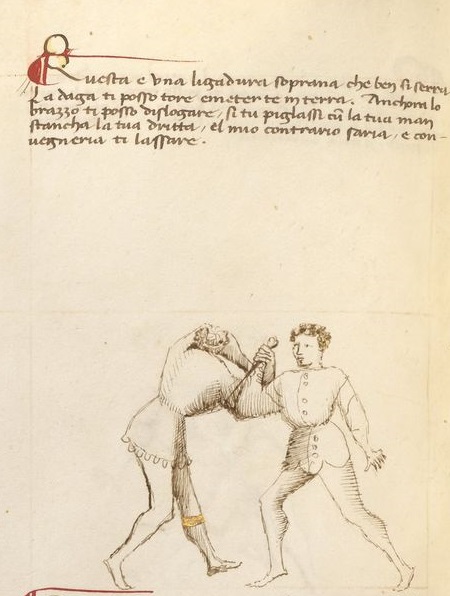 Questa e una ligadura soprana che ben si serra
La daga ti posso tore e meter te in terra. Anchora lo
brazzo ti posso dislogare, si tu piglassi cu~ la tua man
stancha la tua dritta, el mio contrario faria, e con-
vegneria ti lassare.